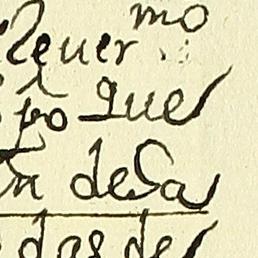 Reuer.mo
po que
en deSa
das de